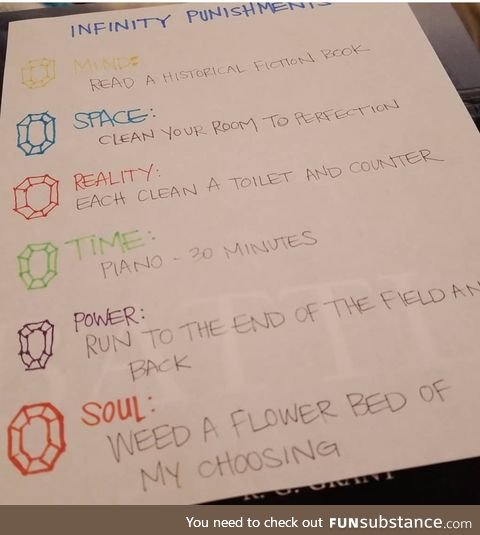 INFINITY PUNISHMENTS
MIND:
READ A HISTORICAL FICTION BOOK
SPACE:
CLEAN YOUR ROOM TO PERFECTION
REALITY:
EACH CLEAN A TOILET AND COUNTER
TIME:
PIANO - 30 MINUTES
POWER:
RUN TO THE END OF THE FIELD AN
BACK
SOUL:
WEED A FLOWER BED OF
MY CHOOSING
You need to check out FUNsubstance.com